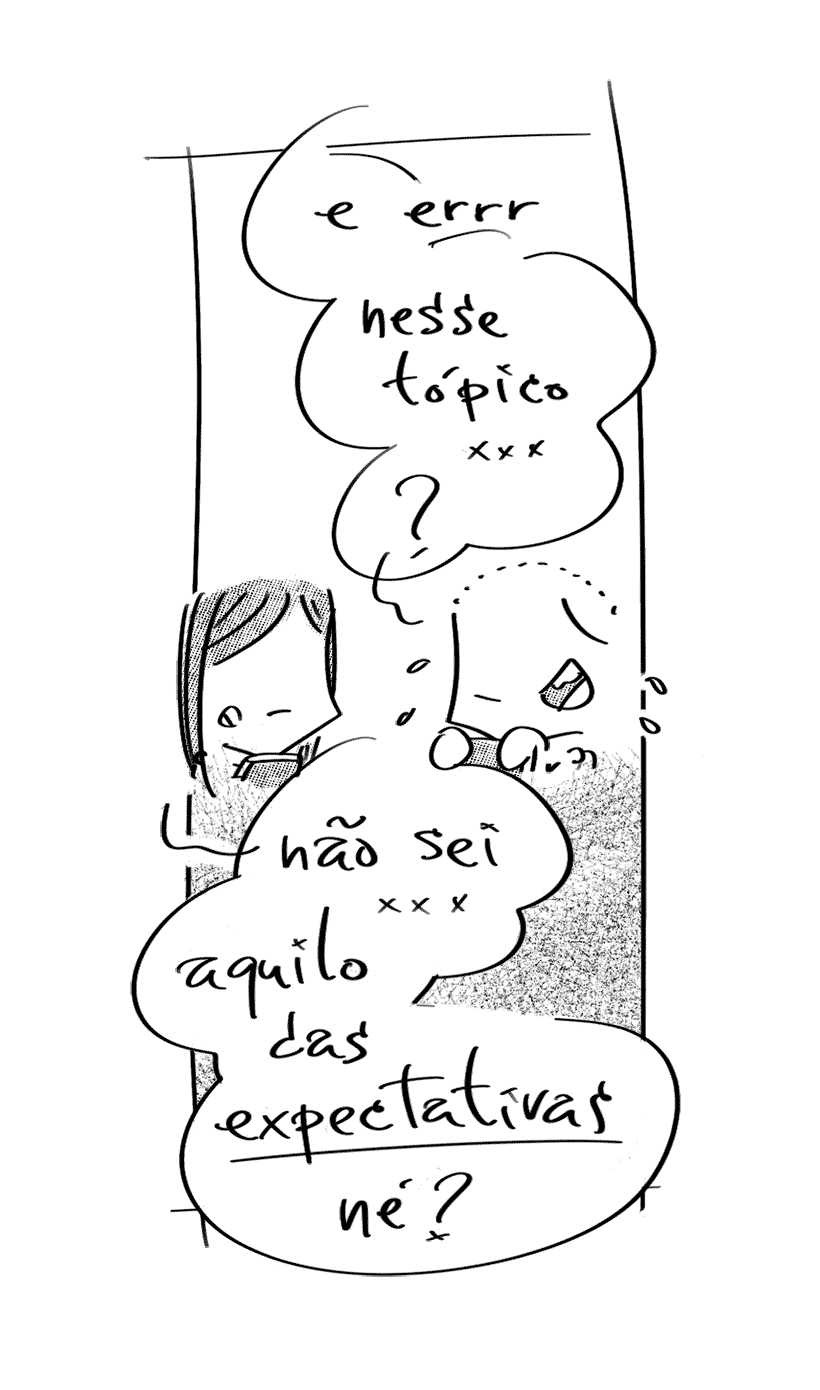 e errr
nesse
tópico
xxx
?
não sei
xxx
aquilo
das
expectativas
né?